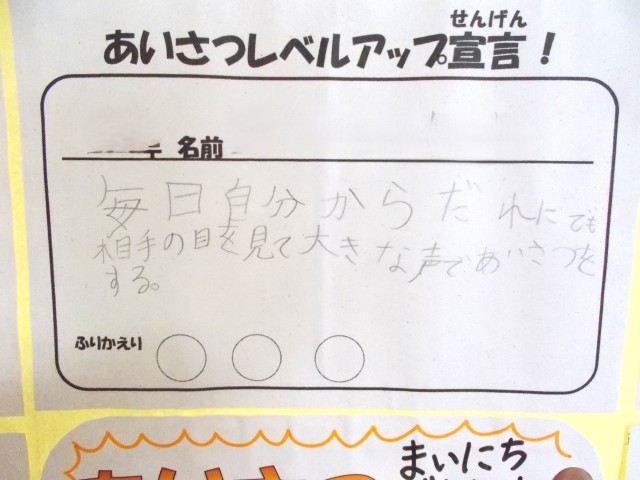 せんげん
あいさつレベルアップ宣言！
名前
毎日自分からだれにでも
相手の目を見て大きな声であいさつを
する。
ふりかえり
まいにち